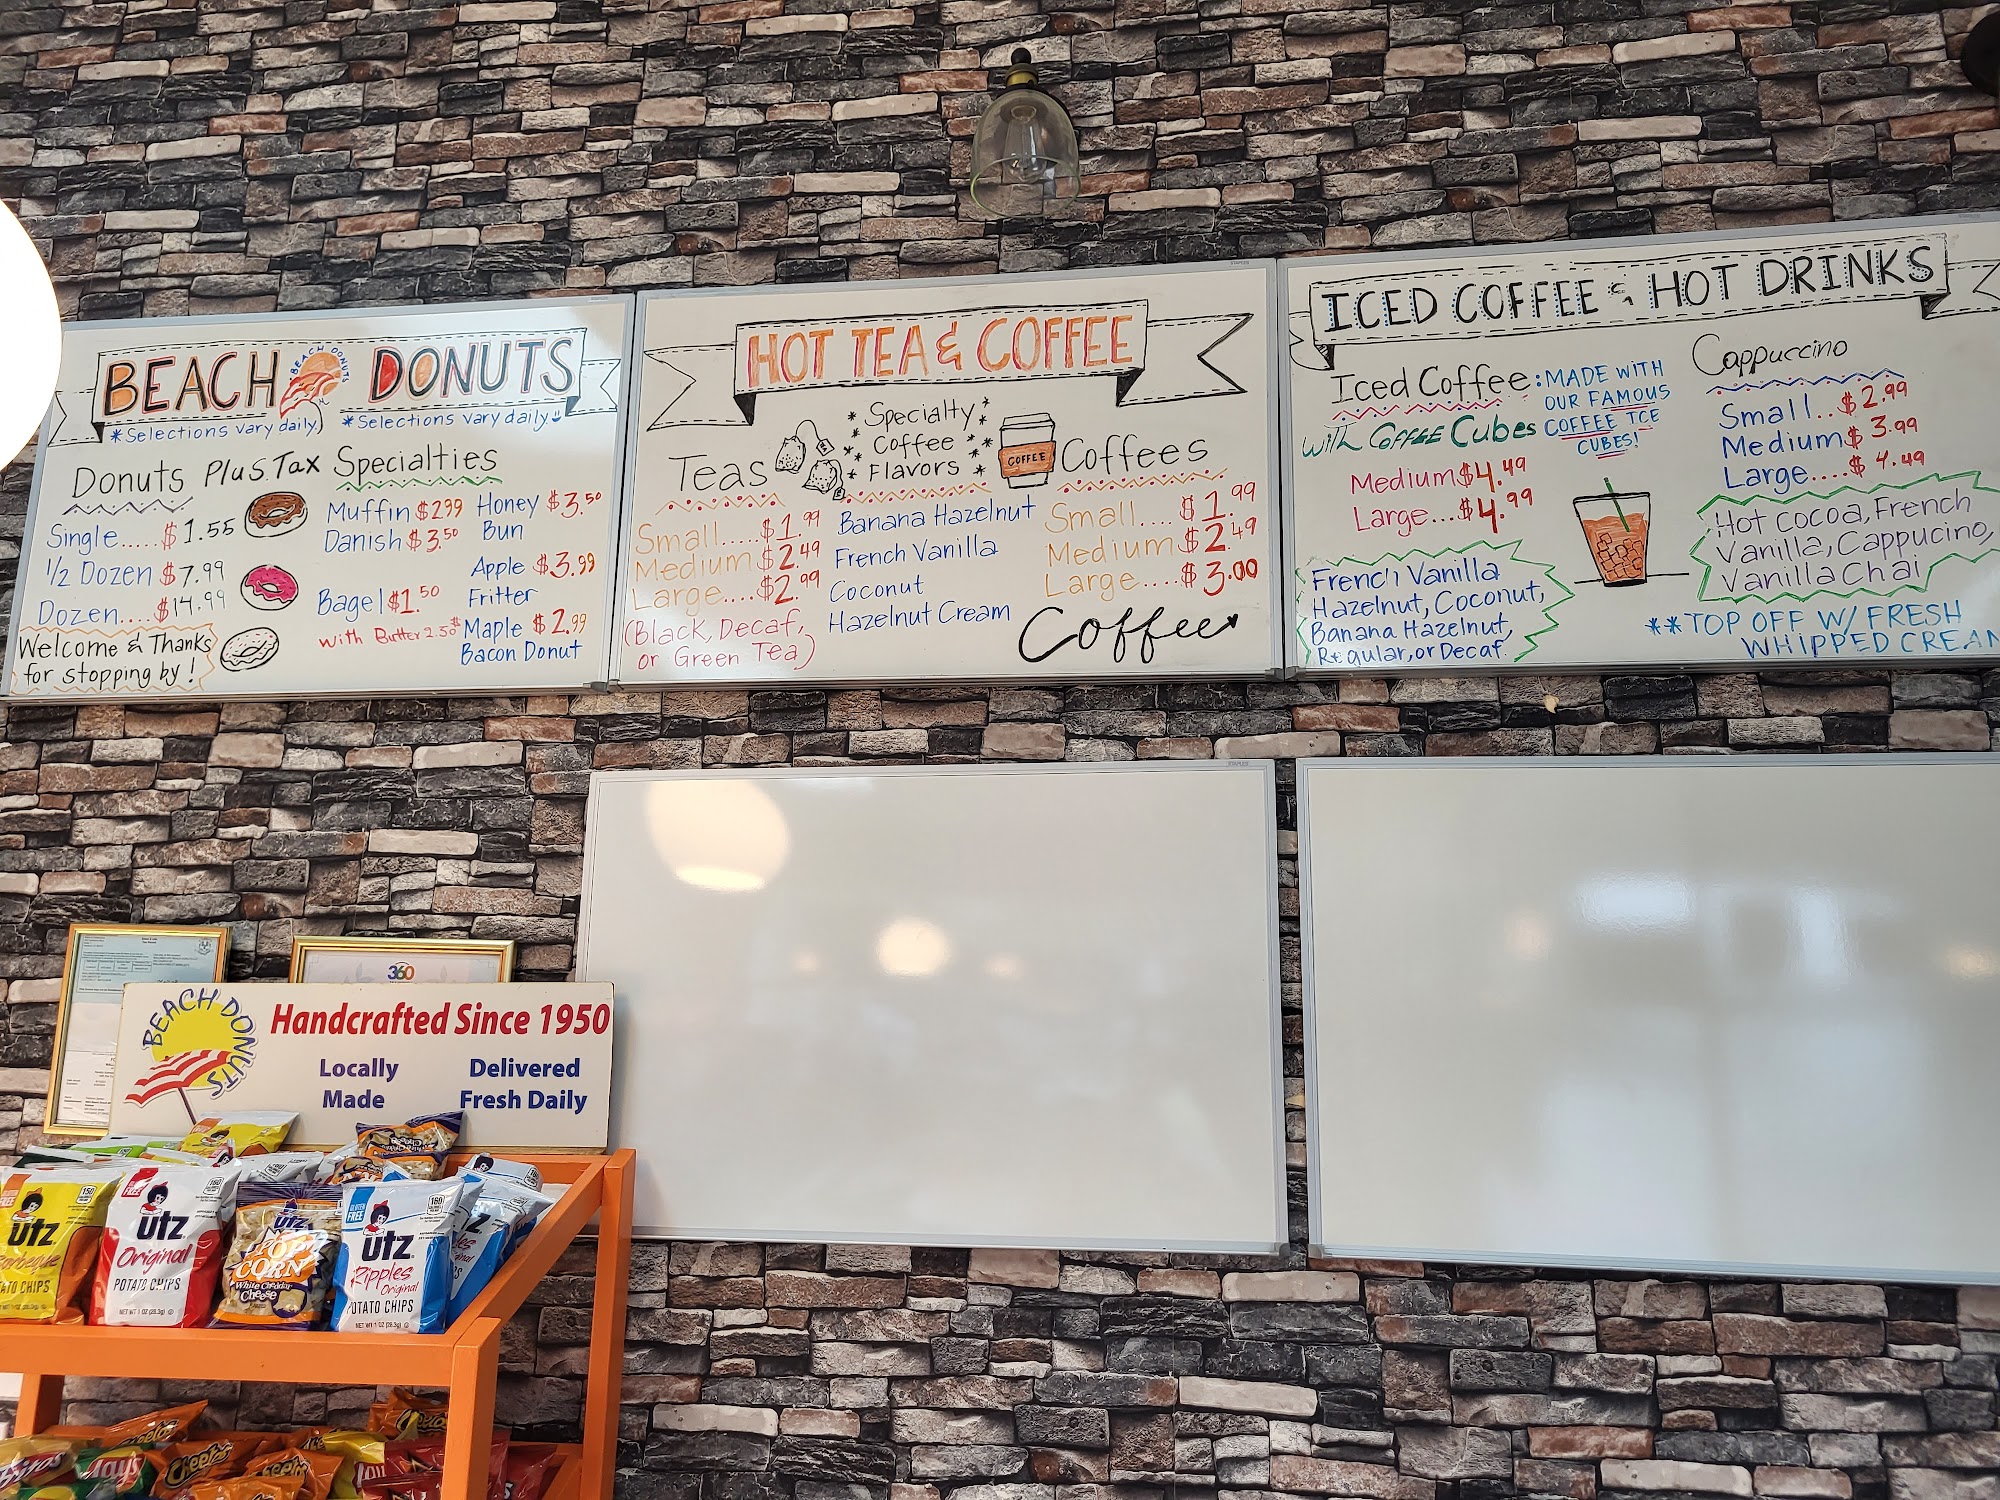 BEACH DONUTS
BEACH DONUTS
*Selections vary daily.)
*Selections vary daily
Donuts Plus Tax
Single..... $1.55
1/2 Dozen $7.99
Dozen.... $14.99
Welcome & Thanks
for stopping by!
Specialties
Muffin $2.99
Danish $3.50
Bagel $1.50
with Butter 2.50$
Honey $3.50
Bun
Apple $3.99
Fritter
Maple $2.99
Bacon Donut
HOT TEA & COFFEE
Teas
Small.....$1.99
Medium $2.49
Large....$2.99
(Black, Decaf,
or Green Tea)
*Specialty*
*Coffee*
*Flavors*
Banana Hazelnut
French Vanilla
Coconut
Hazelnut Cream
COFFEE
Coffees
Small.... $1.99
Medium $2.49
Large.... $3.00
Coffee
ICED COFFEE & HOT DRINKS
Iced Coffee: MADE WITH
OUR FAMOUS
COFFEE ICE
CUBES!
with Coffee Cubes
Medium $4.49
Large...$4.99
French Vanilla
Hazelnut, Coconut,
Banana Hazelnut,
Regular, or Decaf.
Cappuccino
Small..$2.99
Medium $3.99
Large....$4.49
Hot cocoa, French
Vanilla, Cappucino,
Vanilla Chai
**TOP OFF W/ FRESH
WHIPPED CREAM
360
BEACH DONUTS
Handcrafted Since 1950
Locally
Made
Delivered
Fresh Daily
utz
Barbeque
POTATO CHIPS
150
utz
Original
POTATO CHIPS
NET WT 1 OZ (28.3g)
160
utz
POP
CORN
White Cheddar
Cheese
GLUTEN
FREE
160
utz
Ripples
Original
POTATO CHIPS
NET WT 1 OZ (28.3g)
Lay's
Cheetos
Cheetos
Cheetos